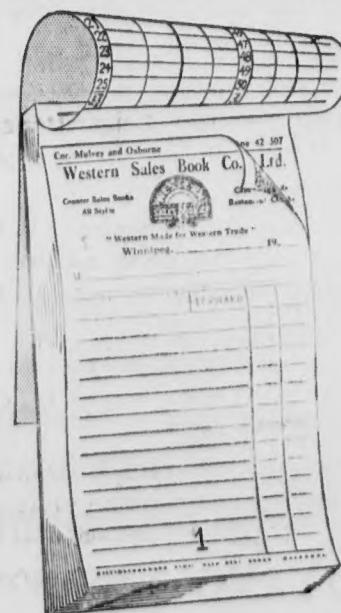 22
23
24
25
47
48
49
50
Cor. Mulvey and Osborne ne 42 507
Western Sales Book Co. Ltd.
Counter Sales Books
All Styles
"Western Made for Western Trade"
Winnipeg, 19
M
FORWARD
1